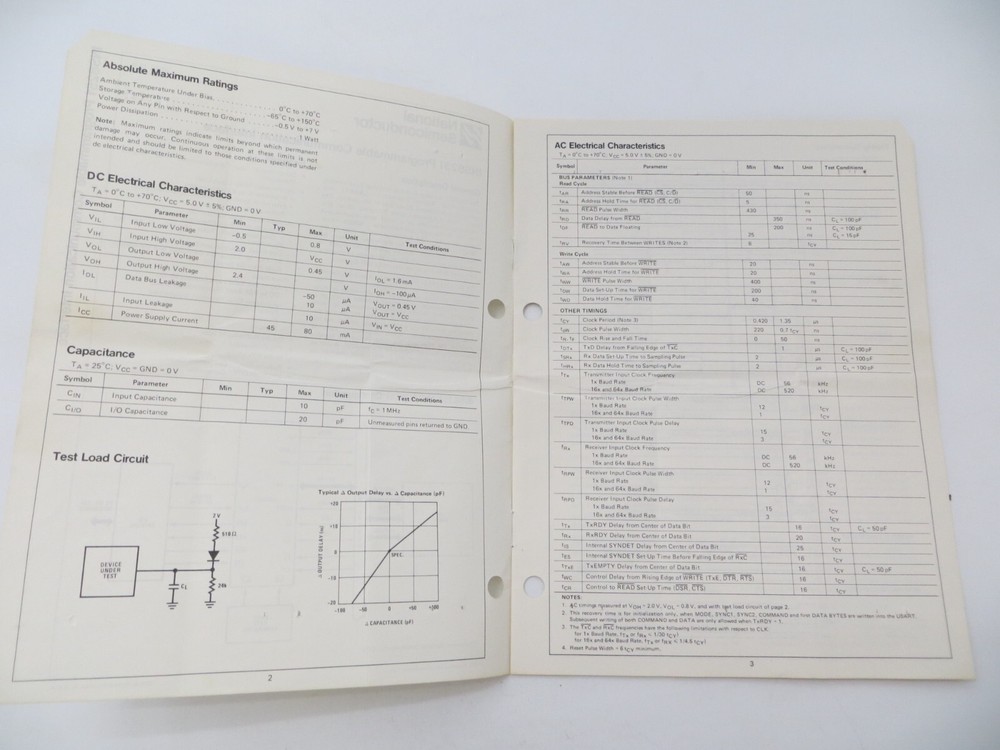 Absolute Maximum Ratings
Ambient Temperature Under Bias . . . . . . . . . . . . 0°C to +70°C
Storage Temperature . . . . . . . . . . . . -65°C to +150°C
Voltage on Any Pin with Respect to Ground . . . . . . -0.5 V to +7 V
Power Dissipation . . . . . . . . . . . . 1 Watt
Note: Maximum ratings indicate limits beyond which permanent
damage may occur. Continuous operation at these limits is not
intended and should be limited to those conditions specified under
dc electrical characteristics.
DC Electrical Characteristics
TA = 0°C to +70°C; VCC = 5.0 V ± 5%; GND = 0 V
Symbol Parameter Min Typ Max Unit Test Conditions
VIL Input Low Voltage -0.5 0.8 V
VIH Input High Voltage 2.0 VCC V
VOL Output Low Voltage 0.45 V IOL = 1.6 mA
VOH Output High Voltage 2.4 V IOH = -100 µA
IDL Data Bus Leakage -50 µA VOUT = 0.45 V
10 µA VOUT = VCC
IIL Input Leakage 10 µA VIN = VCC
ICC Power Supply Current 45 80 mA
Capacitance
TA = 25°C; VCC = GND = 0 V
Symbol Parameter Min Typ Max Unit Test Conditions
CIN Input Capacitance 10 pF fC = 1 MHz
CI/O I/O Capacitance 20 pF Unmeasured pins returned to GND.
Test Load Circuit
2 V
510 Ω
DEVICE
UNDER
TEST
CL
24k
Typical Δ Output Delay vs. Δ Capacitance (pF)
Δ OUTPUT DELAY (ns)
+20
+10
0
-10
-20
SPEC.
-100 -50 0 +50 +100
Δ CAPACITANCE (pF)
2
AC Electrical Characteristics
TA = 0°C to +70°C; VCC = 5.0 V ± 5%; GND = 0 V
Symbol Parameter Min Max Unit Test Conditions
BUS PARAMETERS (Note 1)
Read Cycle
tAR Address Stable Before READ (CS, C/D) 50 ns
tRA Address Hold Time for READ (CS, C/D) 5 ns
tRR READ Pulse Width 430 ns
tRD Data Delay from READ 350 ns CL = 100 pF
tDF READ to Data Floating 200 ns CL = 100 pF
25 ns CL = 15 pF
tRV Recovery Time Between WRITES (Note 2) 6 tCY
Write Cycle
tAW Address Stable Before WRITE 20 ns
tWA Address Hold Time for WRITE 20 ns
tWW WRITE Pulse Width 400 ns
tDW Data Set-Up Time for WRITE 200 ns
tWD Data Hold Time for WRITE 40 ns
OTHER TIMINGS
tCY Clock Period (Note 3) 0.420 1.35 µs
tφW Clock Pulse Width 220 0.7 tCY ns
tR, tF Clock Rise and Fall Time 0 50 ns
tDTx TxD Delay from Falling Edge of TxC 1 µs CL = 100 pF
tSRx Rx Data Set-Up Time to Sampling Pulse 2 µs CL = 100 pF
tHRx Rx Data Hold Time to Sampling Pulse 2 µs CL = 100 pF
fTx Transmitter Input Clock Frequency
1x Baud Rate DC 56 kHz
16x and 64x Baud Rate DC 520 kHz
tTPW Transmitter Input Clock Pulse Width
1x Baud Rate 12 tCY
16x and 64x Baud Rate 1 tCY
tTPD Transmitter Input Clock Pulse Delay
1x Baud Rate 15 tCY
16x and 64x Baud Rate 3 tCY
fRx Receiver Input Clock Frequency
1x Baud Rate DC 56 kHz
16x and 64x Baud Rate DC 520 kHz
tRPW Receiver Input Clock Pulse Width
1x Baud Rate 12 tCY
16x and 64x Baud Rate 1 tCY
tRPD Receiver Input Clock Pulse Delay
1x Baud Rate 15 tCY
16x and 64x Baud Rate 3 tCY
tTx TxRDY Delay from Center of Data Bit 16 tCY CL = 50 pF
tRx RxRDY Delay from Center of Data Bit 20 tCY
tIS Internal SYNDET Delay from Center of Data Bit 25 tCY
tES Internal SYNDET Set-Up Time Before Falling Edge of RxC 16 tCY
tTxE TxEMPTY Delay from Center of Data Bit 16 tCY CL = 50 pF
tWC Control Delay from Rising Edge of WRITE (TxE, DTR, RTS) 16 tCY
tCR Control to READ Set-Up Time (DSR, CTS) 16 tCY
NOTES:
1. AC timings measured at VOH = 2.0 V, VOL = 0.8 V, and with test load circuit of page 2.
2. This recovery time is for initialization only, when MODE, SYNC1, SYNC2, COMMAND and first DATA BYTES are written into the USART.
Subsequent writing of both COMMAND and DATA are only allowed when TxRDY = 1.
3. The TxC and RxC frequencies have the following limitations with respect to CLK
for 1x Baud Rate, fTx or fRx < 1/(30 tCY)
for 16x and 64x Baud Rate, fTx or fRx < 1/(4.5 tCY)
4. Reset Pulse Width = 6 tCY minimum.
3